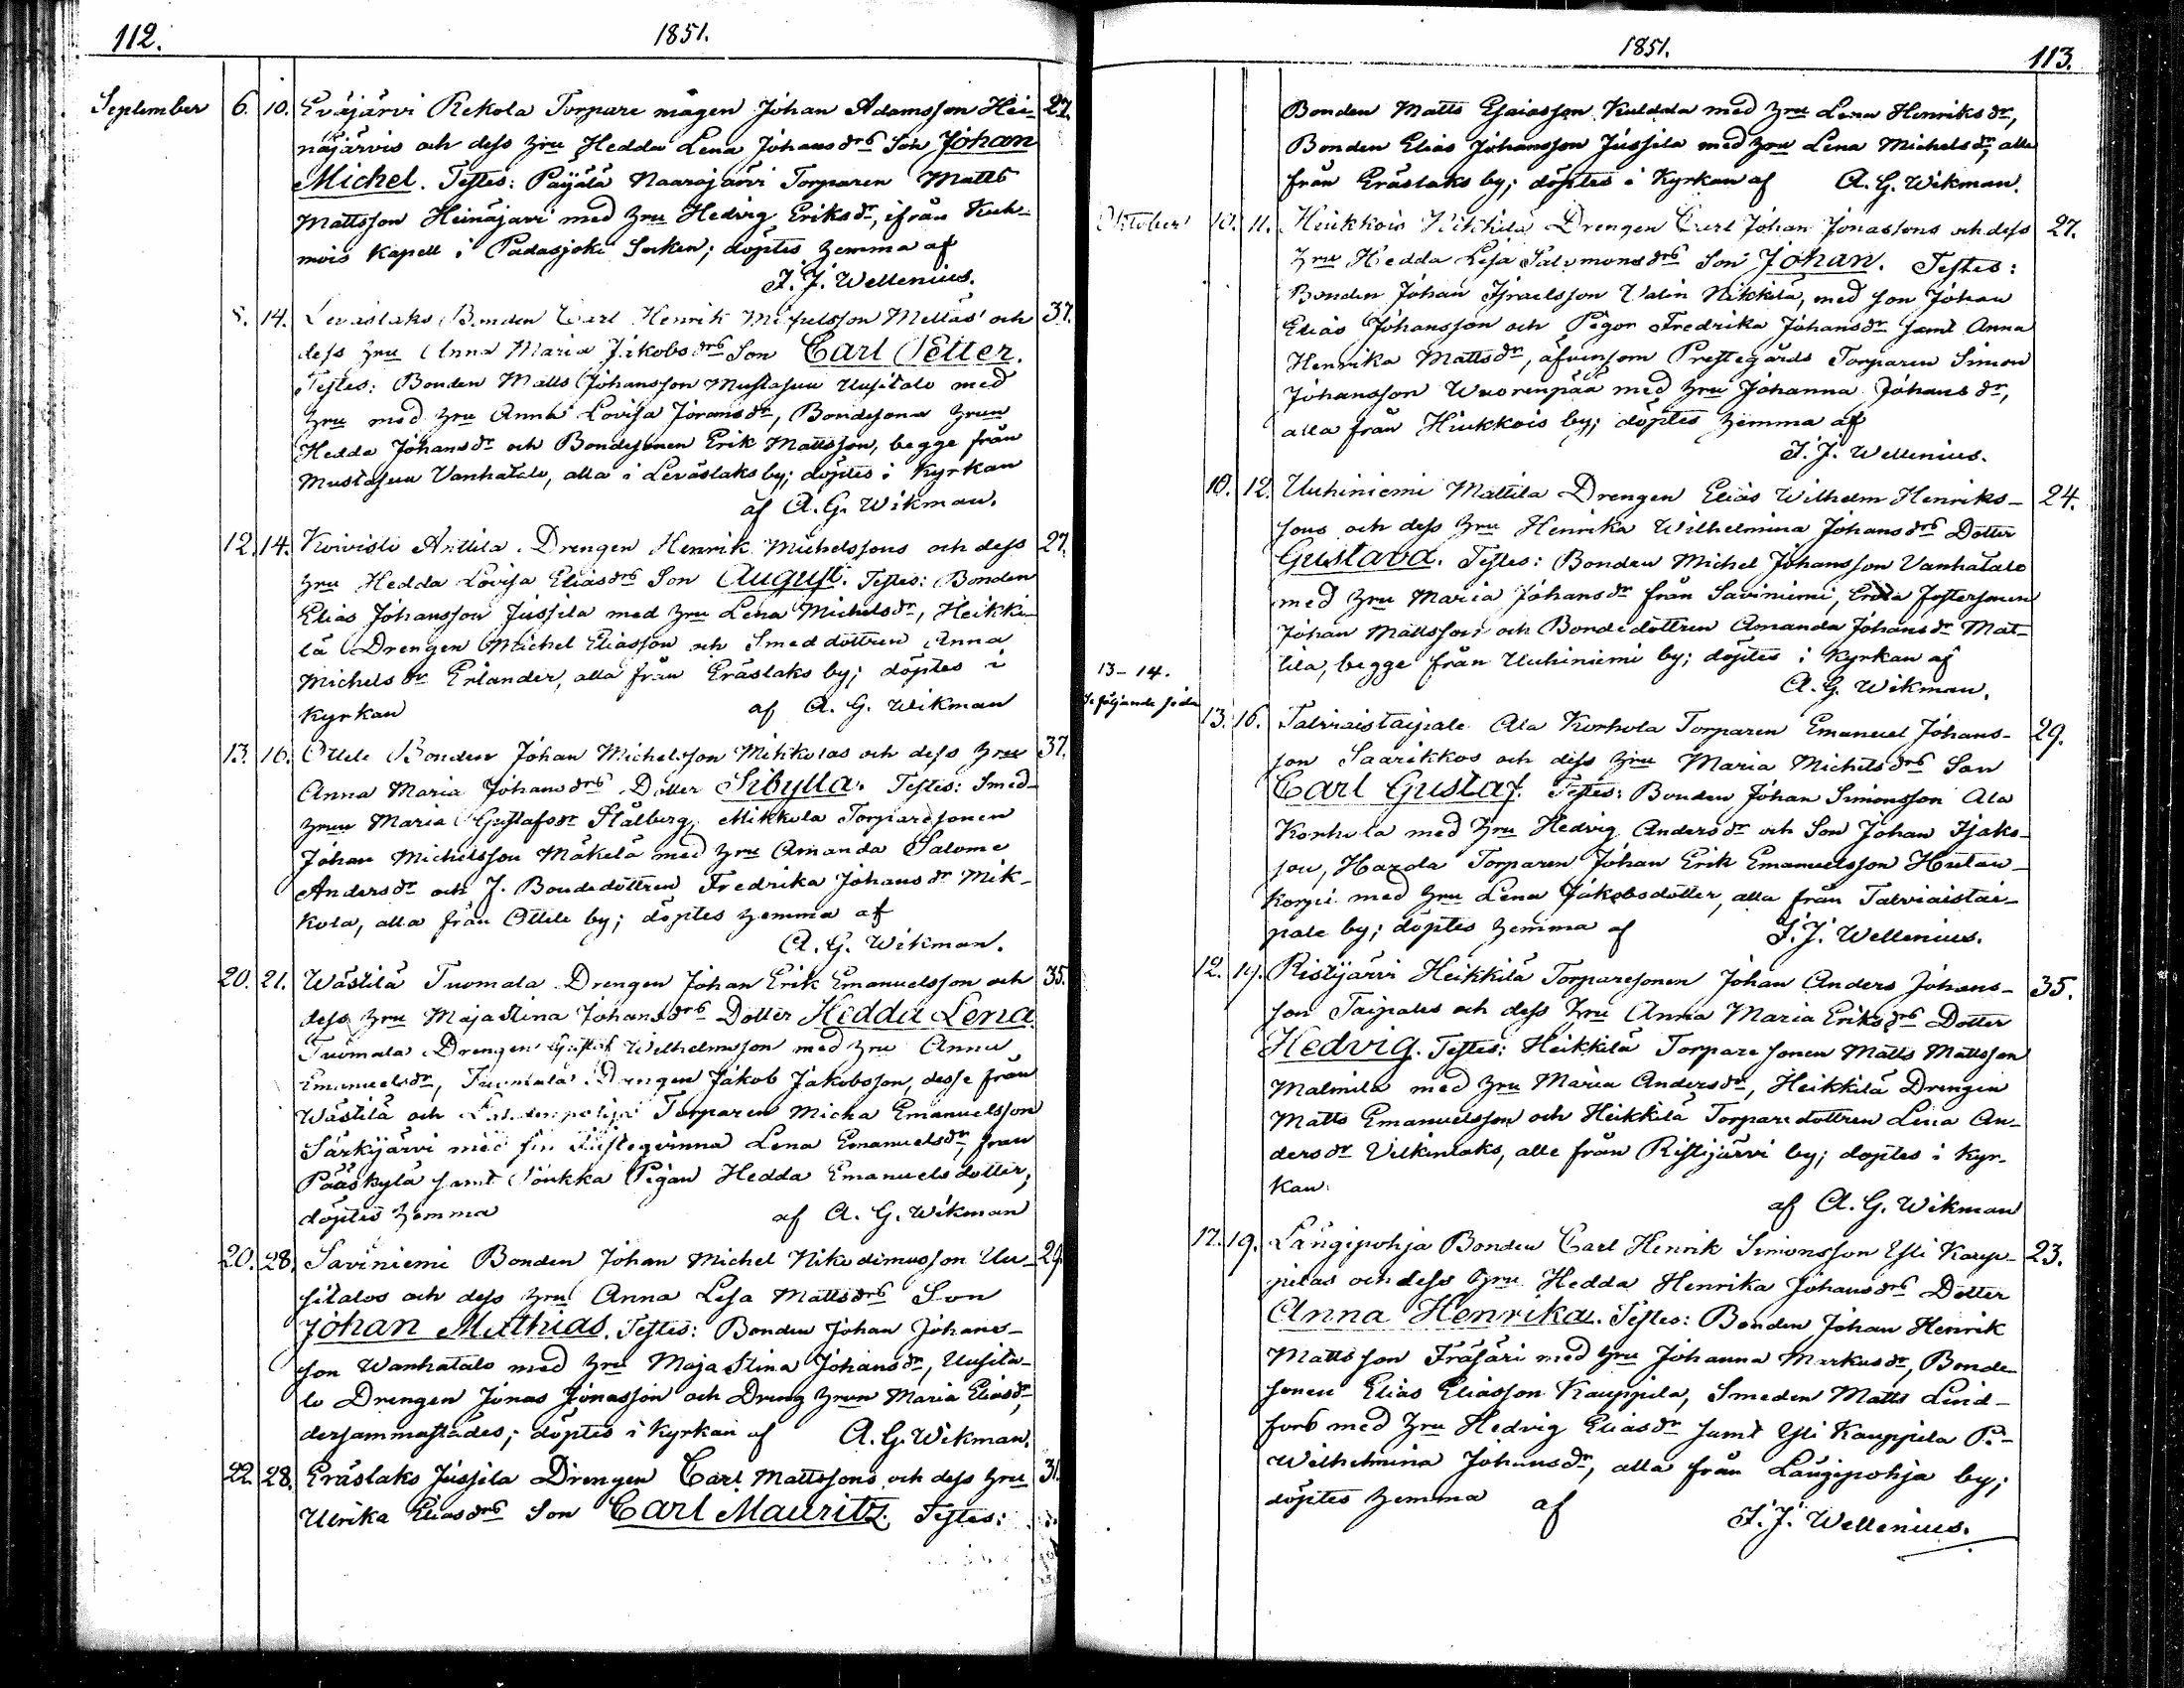 112.
1851.
September 6. 10. Eväjärvi Rekola Torpare mågen Johan Adamsson Hei- 27.
näjärvis och dess hru Hedda Lena Johansdrs Son Johan
Michel. Testes: Päijälä Naarajärvi Torparen Matts
Mattsson Heinäjärvi med hru Hedvig Eriksdr, ifrån Kuh-
mois Kapell i Padasjoki Socken; döptes hemma af
F. J. Wellenius.
8. 14. Leväslaks Bonden Carl Henrik Michelsson Mellas' och 37.
dess hru Anna Maria Jakobsdrs Son Carl Petter.
Testes: Bonden Matts Johansson Mustasuu Uusitalo med
hru med hru Anna Lovisa Joransdr, Bondesona hrun
Hedda Johansdr och Bondesonen Erik Mattsson, begge från
Mustasuu Vanhatalo, alla i Leväslaks by; döptes i Kyrkan
af A. G. Wikman.
12. 14. Koivisto Anttila Drengen Henrik Michelssons och dess 27.
hru Hedda Lovisa Eliasdrs Son August. Testes: Bonden
Elias Johansson Jussila med hru Lena Michelsdr, Heikki-
lä Drengen Michel Eliasson och Smeddottren Anna
Michelsdr Erlander, alla från Eräslaks by; döptes i
Kyrkan af A. G. Wikman
13. 16. Ollele Bonden Johan Michelsson Mikkolas och dess hru 37.
Anna Maria Johansdrs Dotter Sibylla. Testes: Smed-
hrun Maria Gustafsdr Stålberg, Mikkola Torparesonen
Johan Michelsson Mäkelä med hru Amanda Salome
Andersdr och J. Bondedottren Fredrika Johansdr Mik-
kola, alla från Ollele by; döptes hemma af
A. G. Wikman.
20. 21. Wästilä Tuomala Drengen Johan Erik Emanuelsson och 35.
dess hru Maja Stina Johansdrs Dotter Hedda Lena
Tuomala Drengen Gustaf Wilhelmsson med hru Anna
Emanuelsdr, Tuomala Drengen Jakob Jakobsson, desse från
Wästilä och Torparen Micha Emanuelsson
Särkijärvi med sin Lena Emanuelsdr, från
Pääskylä samt Pigan Hedda Emanuels dotter;
döptes hemma af A. G. Wikman
20. 28. Saviniemi Bonden Johan Michel Nikodimusson Uu- 29.
sitalos och dess hru Anna Lisa Mattsdrs Son
Johan Mathias. Testes: Bonden Johan Johans-
son Wanhatalo med hru Maja Stina Johansdr, Uusita-
lo Drengen Jonas Jonasson och Dreng hrun Maria Eliasdr,
dersammastädes; döptes i Kyrkan af A. G. Wikman.
22. 28. Eräslaks Jussila Drengen Carl Mattssons och dess hru 31.
Ulrika Eliasdrs Son Carl Mauritz. Testes:
1851.
113.
Bonden Matts Esaiasson Kuldala med hru Lena Henriksdr,
Bonden Elias Johansson Jussila med hru Lena Michelsdr, alla
från Eräslaks by; döptes i Kyrkan af A. G. Wikman.
Oktober 10. 11. Hiukkois Nikkilä Drengen Carl Johan Jonassons och dess 27.
hru Hedda Lisa Salomonsdrs Son Johan. Testes:
Bonden Johan Israelsson Valin Nikkilä, med son Johan
Elias Johansson och Pigan Fredrika Johansdr samt Anna
Henrika Mattsdr, äfvensom Prestegårds Torparen Simon
Johansson Wuorenpää med hru Johanna Johansdr,
alla från Hiukkois by; döptes hemma af
F. J. Wellenius.
10. 12. Uuhiniemi Mattila Drengen Elias Wilhelm Henriks- 24.
sons och dess hru Henrika Wilhelmina Johansdrs Dotter
Gustava. Testes: Bonden Michel Johansson Vanhatalo
med hru Maria Johansdr från Saviniemi, Enda fostersonen
Johan Mattsson och Bondedottren Amanda Johansdr Mat-
tila, begge från Uuhiniemi by; döptes i Kyrkan af
A. G. Wikman.
13-14.
Se följande sida
13. 16. Talviaistaipale Ala Korhola Torparen Emanuel Johans- 29.
son Saarikkos och dess hru Maria Michelsdrs Son
Carl Gustaf. Testes: Bonden Johan Simonsson Ala
Korhola med hru Hedvig Andersdr och Son Johan Isaks-
son, Torparen Johan Erik Emanuelsson
korpi med hru Lena Jakobsdotter, alla från Talviaistai-
pale by; döptes hemma af F. J. Wellenius.
12. 19. Ristijärvi Heikkilä Torparesonen Johan Anders Johans- 35.
son Taipales och dess hru Anna Maria Eriksdrs Dotter
Hedvig. Testes: Heikkilä Torpare sonen Matts Mattsson
Malmila med hru Maria Andersdr, Heikkilä Drengen
Matts Emanuelsson och Heikkilä Torparedottren Lena An-
dersdr Vilkinlaks, alla från Ristijärvi by; döptes i Kyr-
kan
af A. G. Wikman
17. 19. Längipohja Bonden Carl Henrik Simonsson Yli Kaup- 23.
pilas och dess hru Hedda Henrika Johansdrs Dotter
Anna Henrika. Testes: Bonden Johan Henrik
Mattsson Fräsäri med hru Johanna Markusdr, Bonde-
sonen Elias Eliasson Kauppila, Smeden Matts Lind-
fors med hru Hedvig Eliasdr samt Yli Kauppila P:-
Wilhelmina Johansdr, alla från Längipohja by;
döptes hemma af F. J. Wellenius.